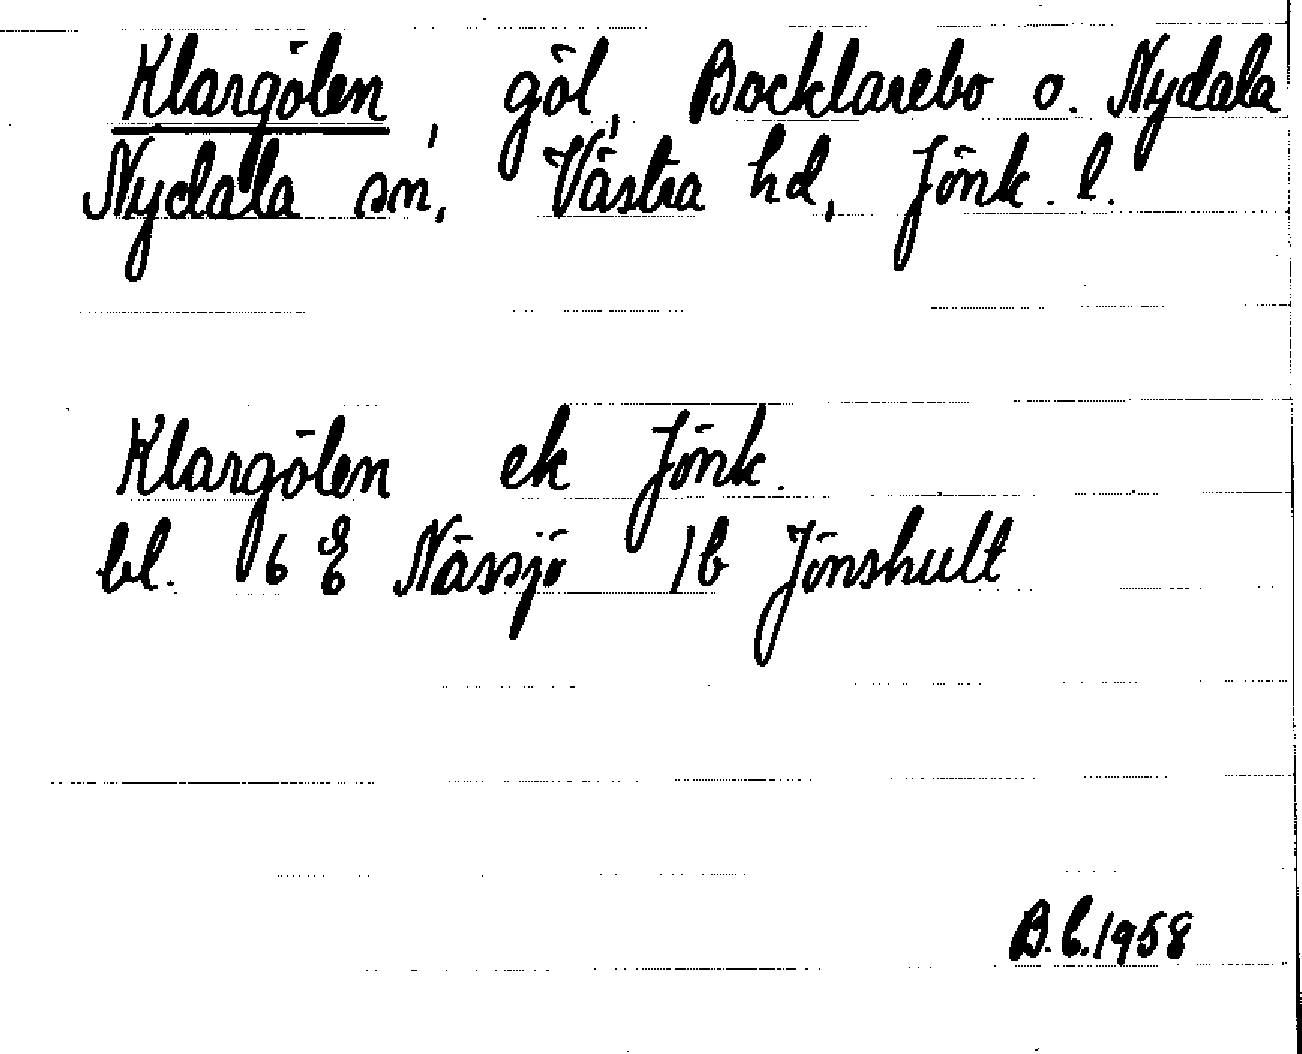 Klargölen, göl, Bocklarebo o. Nydala
Nydala sn, Västra hd, Jönk. l.
Klargölen ek Jönk.
bl. 6 E Nässjö 1b Jönshult
B.b.1958